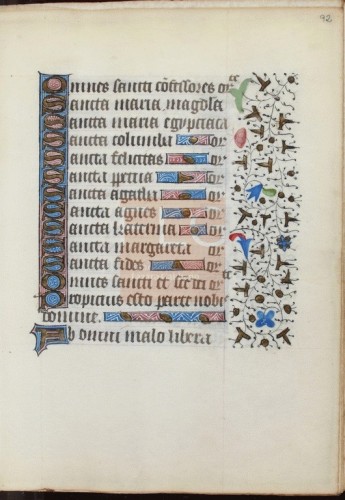 92
Omnes sancti cõfessores or̃
Sancta maria magdal̃
Sancta maria egypciaca
Sancta columba or̃
Sancta felicitas or̃
Sancta
Sancta agatha or̃
Sancta agnes or̃
Sancta katerina or̃
Sancta margareta or̃
Sancta fides or̃
Omnes sancti et or̃
Propicius esto parce nobis
domine.
Ab omni malo libera